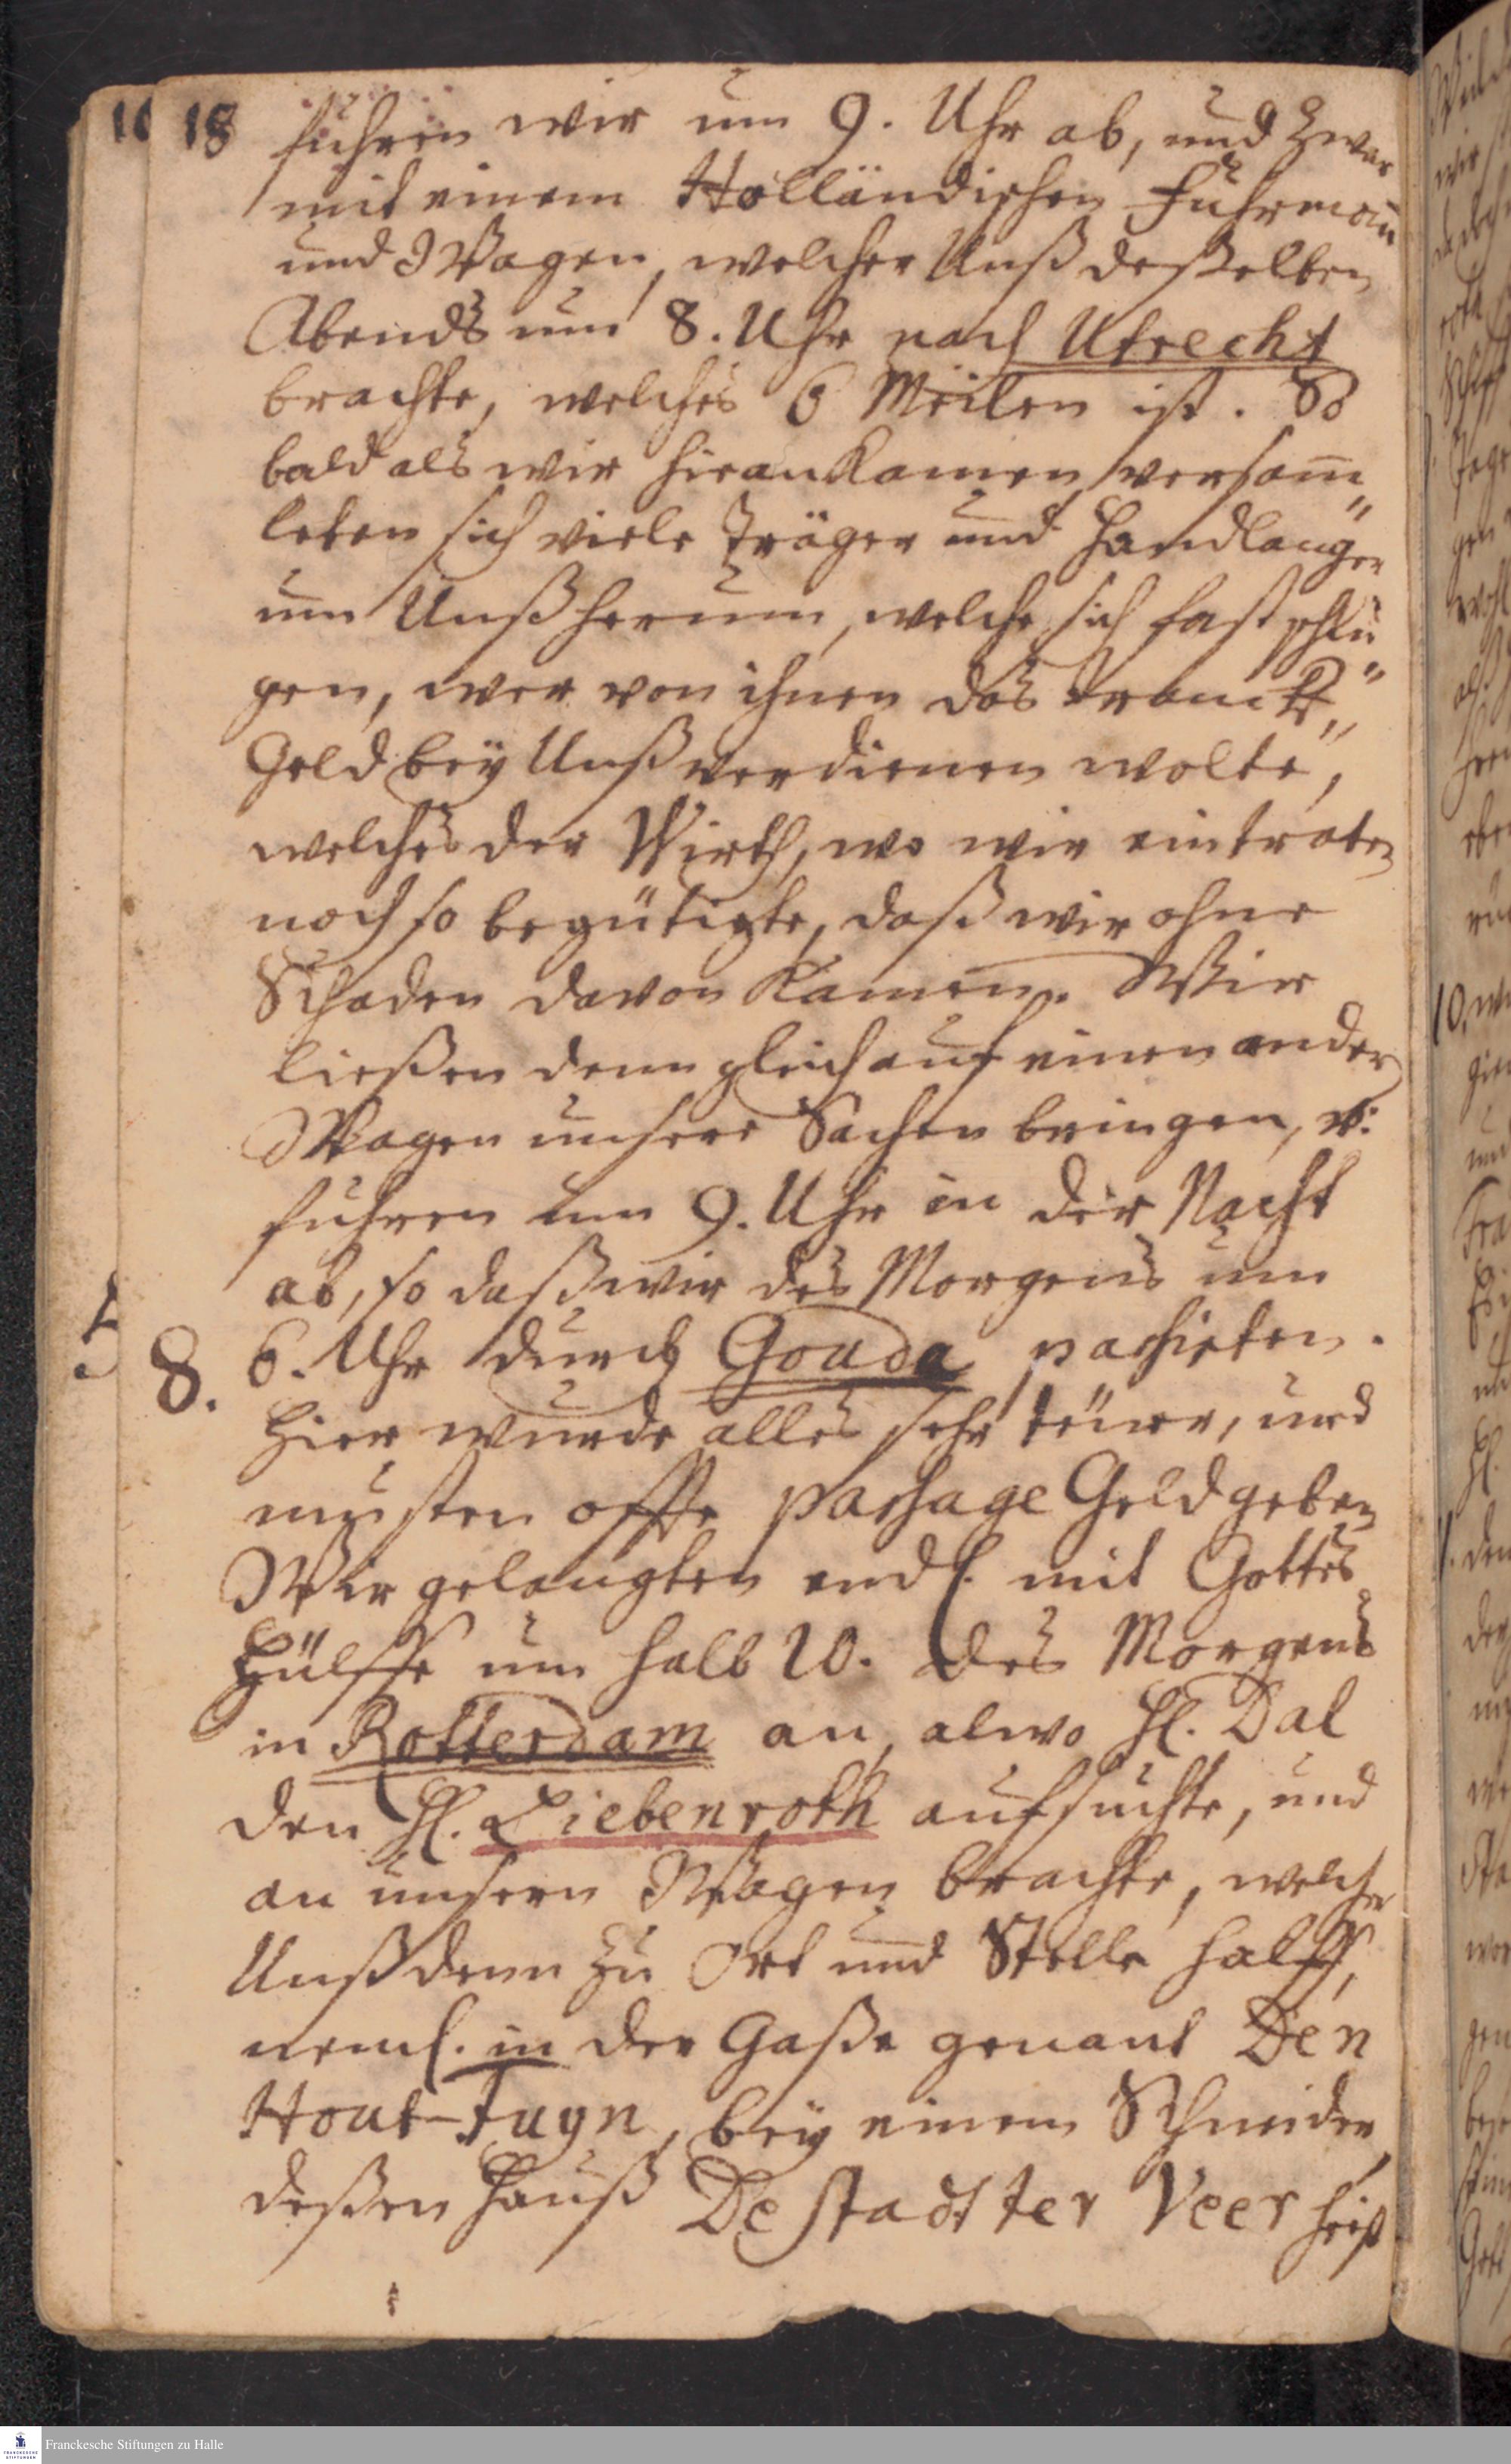 18
fuhren wir um 9. Uhr ab, und zwar
mit einem Holländischen Fuhrmañ
und Wagen, welcher Unß deßelben
Abends um 8. Uhr nach Utrecht
brachte, welches 6 Meilen ist. So
bald als wir hier ankamen, versam̃„
leten sich viele Träger und Handlanger
um Unß herum, welche sich fast schlu„
gen, wer von ihnen das Tranck„
Geld bey Unß verdienen wolte,
welches der Wirth, wo wir eintraten
noch so begütigte, daß wir ohne
Schaden davon kamen. Wir
ließen denn gleich auf einen andern
Wagen unsere Sachen bringen, u:
fuhren um 9. Uhr in der Nacht
ab, so daß wir des Morgens um
8. 6. Uhr durch Gouda passirten.
Hier wurde alles sehr teüer, und
musten offte passage Geld geben
Wir gelangten endl. mit Gottes
Hülffe um halb 10. des Morgens
in Rotterdam an, alwo H. Dal
den H. Liebenroth aufsuchte, und
an unsern Wagen brachte, welcher
Unß denn zu Ort und Stelle halff,
neml. in der Gaße genant Den
Hout-Tuyn, bey einem Schneider
deßen Hauß De stadt ter Veer hieß
Franckesche Stiftungen zu Halle